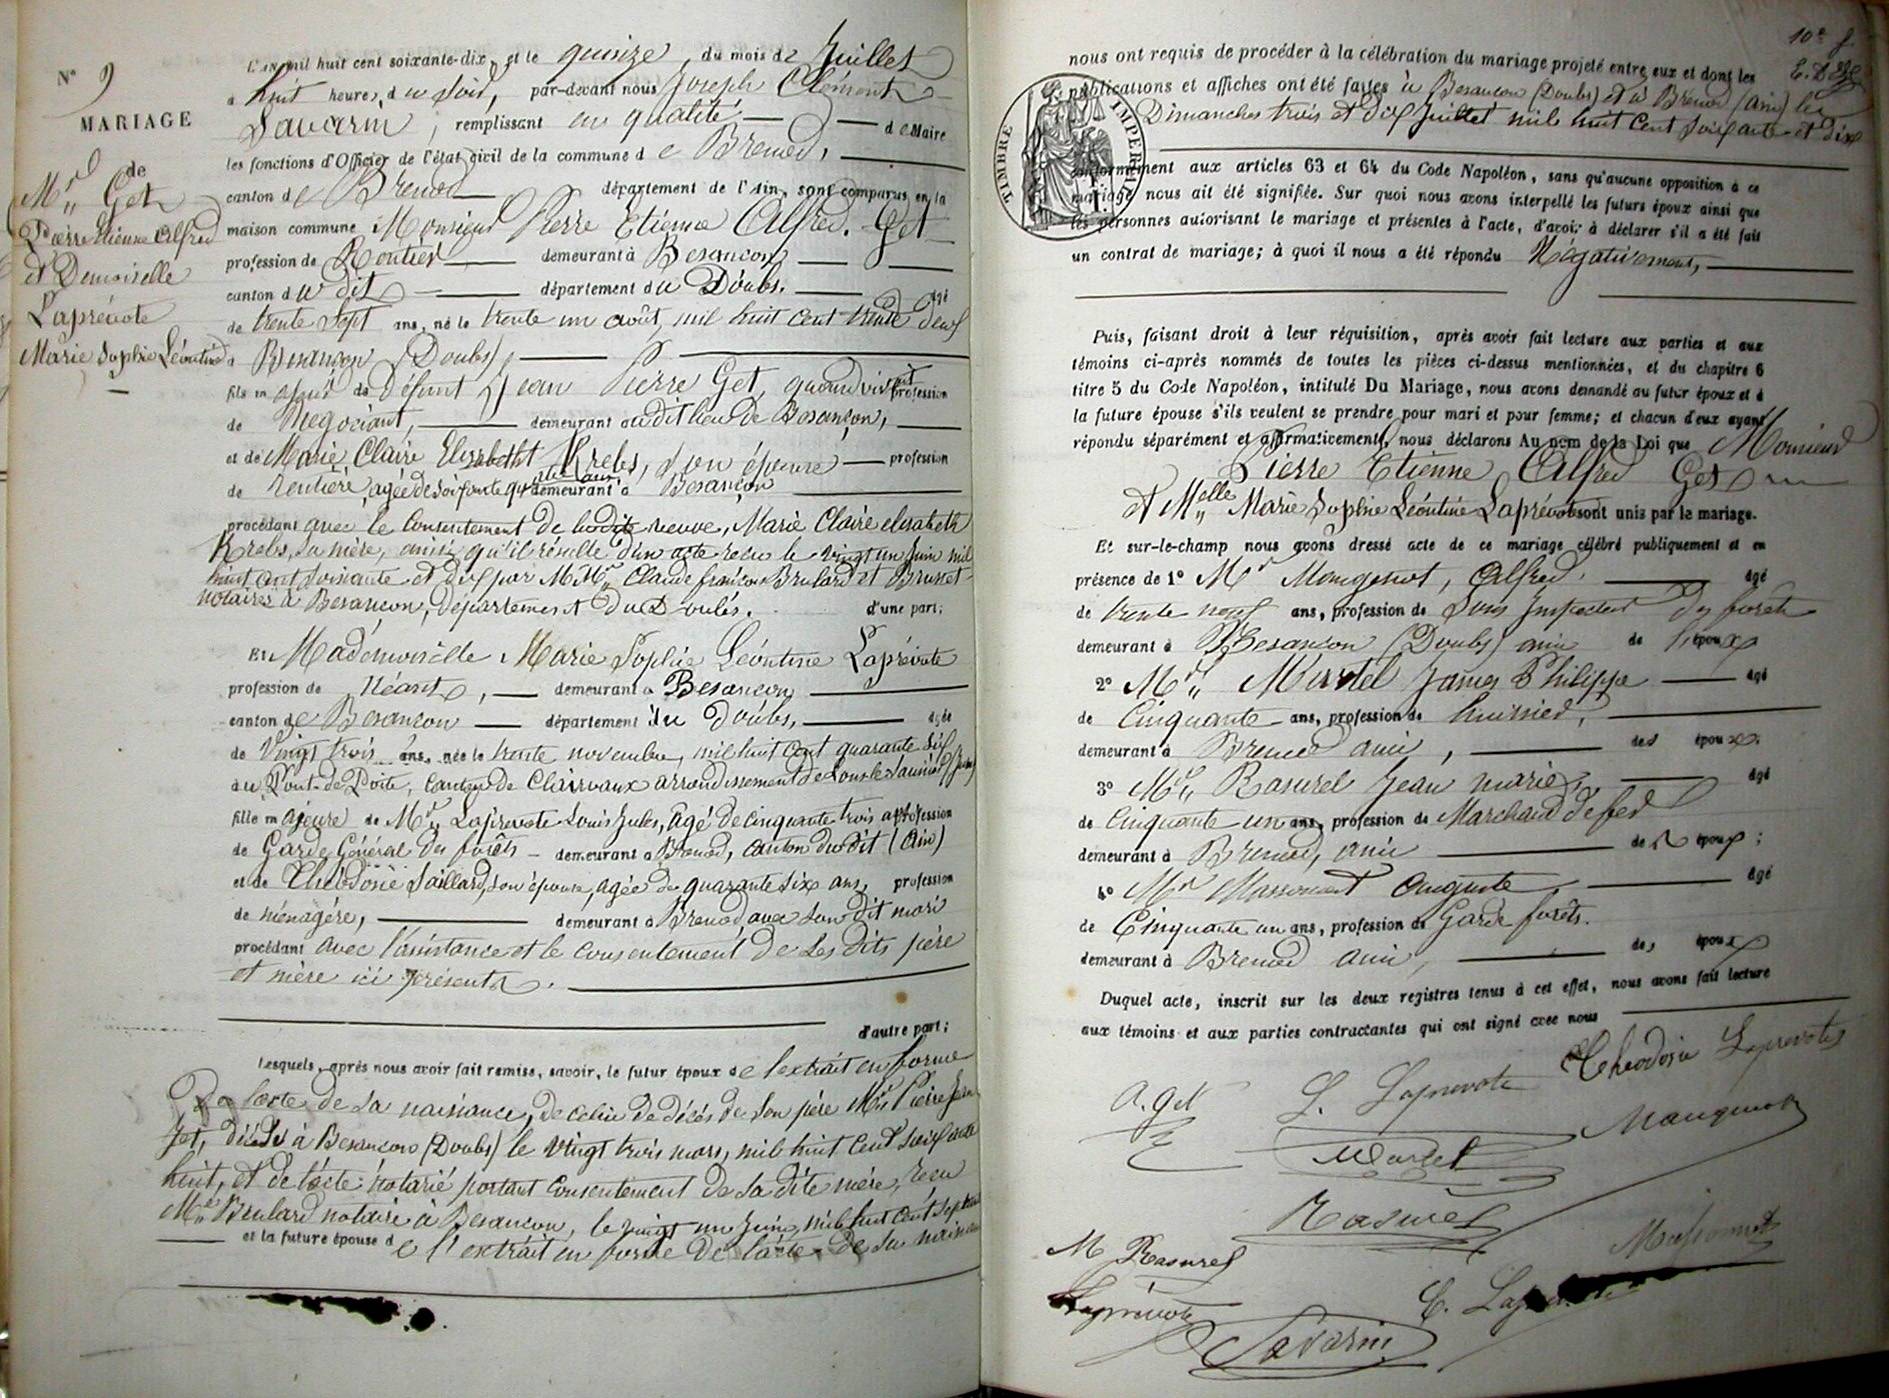 N° 9
MARIAGE
de
Mr Get
Pierre Etienne Alfred
et Demoiselle
Laprévote
Marie Sophie Léontine
L'an mil huit cent soixante-dix, et le quinize, du mois de Juillet
à huit heures, du soir, par-devant nous Joseph Clément
Savarin, remplissant en qualité de Maire
les fonctions d'Officier de l'état civil de la commune de Brenod,
canton de Brenod département de l'Ain, sont comparus en la
maison commune Monsieur Pierre Etienne Alfred. Get
profession de Rentier demeurant à Besançon
canton du dit département du Doubs. âgé
de trente sept ans, né le trente un août, mil huit cent trente deux
à Besançon (Doubs),
fils majeur de défunt Jean Pierre Get, quand vivait profession
de Négociant, demeurant au dit lieu de Besançon,
et de Marie Claire Elisabetht Krebs, son épouse profession
de rentière, agée de soixante quatre ans demeurant à Besançon
procédant avec le consentement de ladite veuve, Marie Claire elisabeth
Krebs, sa mère, ainsi qu'il résulte d'un acte reçu le vingt un Juin mil
huit cent soixante et dix par M. Mr Claude françois Brulard et Brunet
notaires à Besançon, département du Doubs. d'une part;
Et Mademoiselle Marie Sophie Léontine Laprévote
profession de Néant, demeurant à Besançon
canton de Besançon département du Doubs, âgée
de vingt trois ans, née le trente novembre, mil huit cent quarante six
au Pont-de-Poite, canton de Clairvaux arrondissement de Lons le Saunier (Jura)
fille majeure de Mr Laprevote Louis Jules, agé de cinquante trois ans profession
de Garde Général des forêts demeurant à Brenod, canton du dit (Ain)
et de Théodosie Saillard, son épouse, agée de quarante six ans, profession
de ménagère, demeurant à Brenod, avec son dit mari
procédant avec l'assistance et le consentement de ses dits père
et mère ici présents.
d'autre part;
Lesquels, après nous avoir fait remise, savoir, le futur époux de l'extrait en forme
De l'acte de sa naissance, de celui de décés de son père Mr Pierre Jean
Get, décédé à Besançon (Doubs) le vingt trois mars, mil huit cent soixante
huit, et de l'acte notarié portant consentement de sa dite mère, reçu
Me Brulard notaire à Besançon, le vingt un Juin, mil huit cent septante
et la future épouse de l'extrait en forme de l'acte de sa naissance
10e f.
nous ont requis de procéder à la célébration du mariage projeté entre eux et dont les
publications et affiches ont été faites à Besançon (Doubs) et à Brenod (Ain) les
Dimanches trois et dix Juillet mil huit cent soixante et dix
TIMBRE IMPERIAL
conformément aux articles 63 et 64 du Code Napoléon, sans qu'aucune opposition à ce
mariage nous ait été signifiée. Sur quoi nous avons interpellé les futurs époux ainsi que
les personnes autorisant le mariage et présentes à l'acte, d'avoir à déclarer s'il a été fait
un contrat de mariage; à quoi il nous a été répondu Négativement,
Puis, faisant droit à leur réquisition, après avoir fait lecture aux parties et aux
témoins ci-après nommés de toutes les pièces ci-dessus mentionnées, et du chapitre 6
titre 5 du Code Napoléon, intitulé Du Mariage, nous avons demandé au futur époux et à
la future épouse s'ils veulent se prendre pour mari et pour femme; et chacun d'eux ayant
répondu séparément et affirmativement, nous déclarons Au nom de la Loi que Monsieur
Pierre Etienne Alfred Get
et Melle Marie Sophie Léontine Laprévote sont unis par le mariage.
Et sur-le-champ nous avons dressé acte de ce mariage célébré publiquement et en
présence de 1° Mr Mougenot, Alfred. âgé
de trente neuf ans, profession de Sous Inspecteur des forêts
demeurant à Besançon (Doubs) ami de l'époux
2° Mr Martel James Philippe âgé
de Cinquante ans, profession de huissier,
demeurant à Brenod ami, des époux;
3° Mr Rasurel Jean marie, âgé
de Cinquante un ans, profession de Marchand de fer
demeurant à Brenod, ami des époux;
4° Mr Massonnet Auguste, âgé
de Cinquante un ans, profession de Garde forêts.
demeurant à Brenod ami, des époux
Duquel acte, inscrit sur les deux registres tenus à cet effet, nous avons fait lecture
aux témoins et aux parties contractantes qui ont signé avec nous
A. Get L. Laprevote Theodosie Laprevote
Martel Mougenot
Rasurel
M Rasurel Massonnet
Laprévote
Savarin